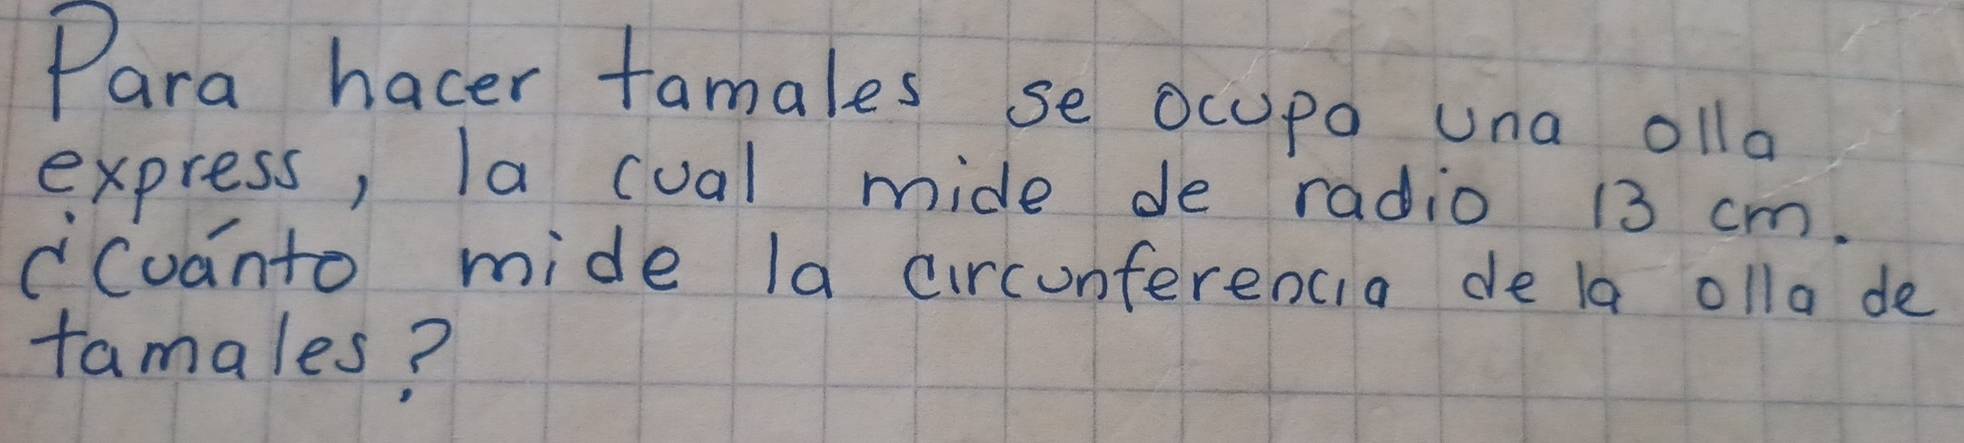 Para hacer tamales se ocupa una olla
express, la cual mide de radio 13 cm.
¿Cuánto mide la circunferencia de la olla de
tamales?